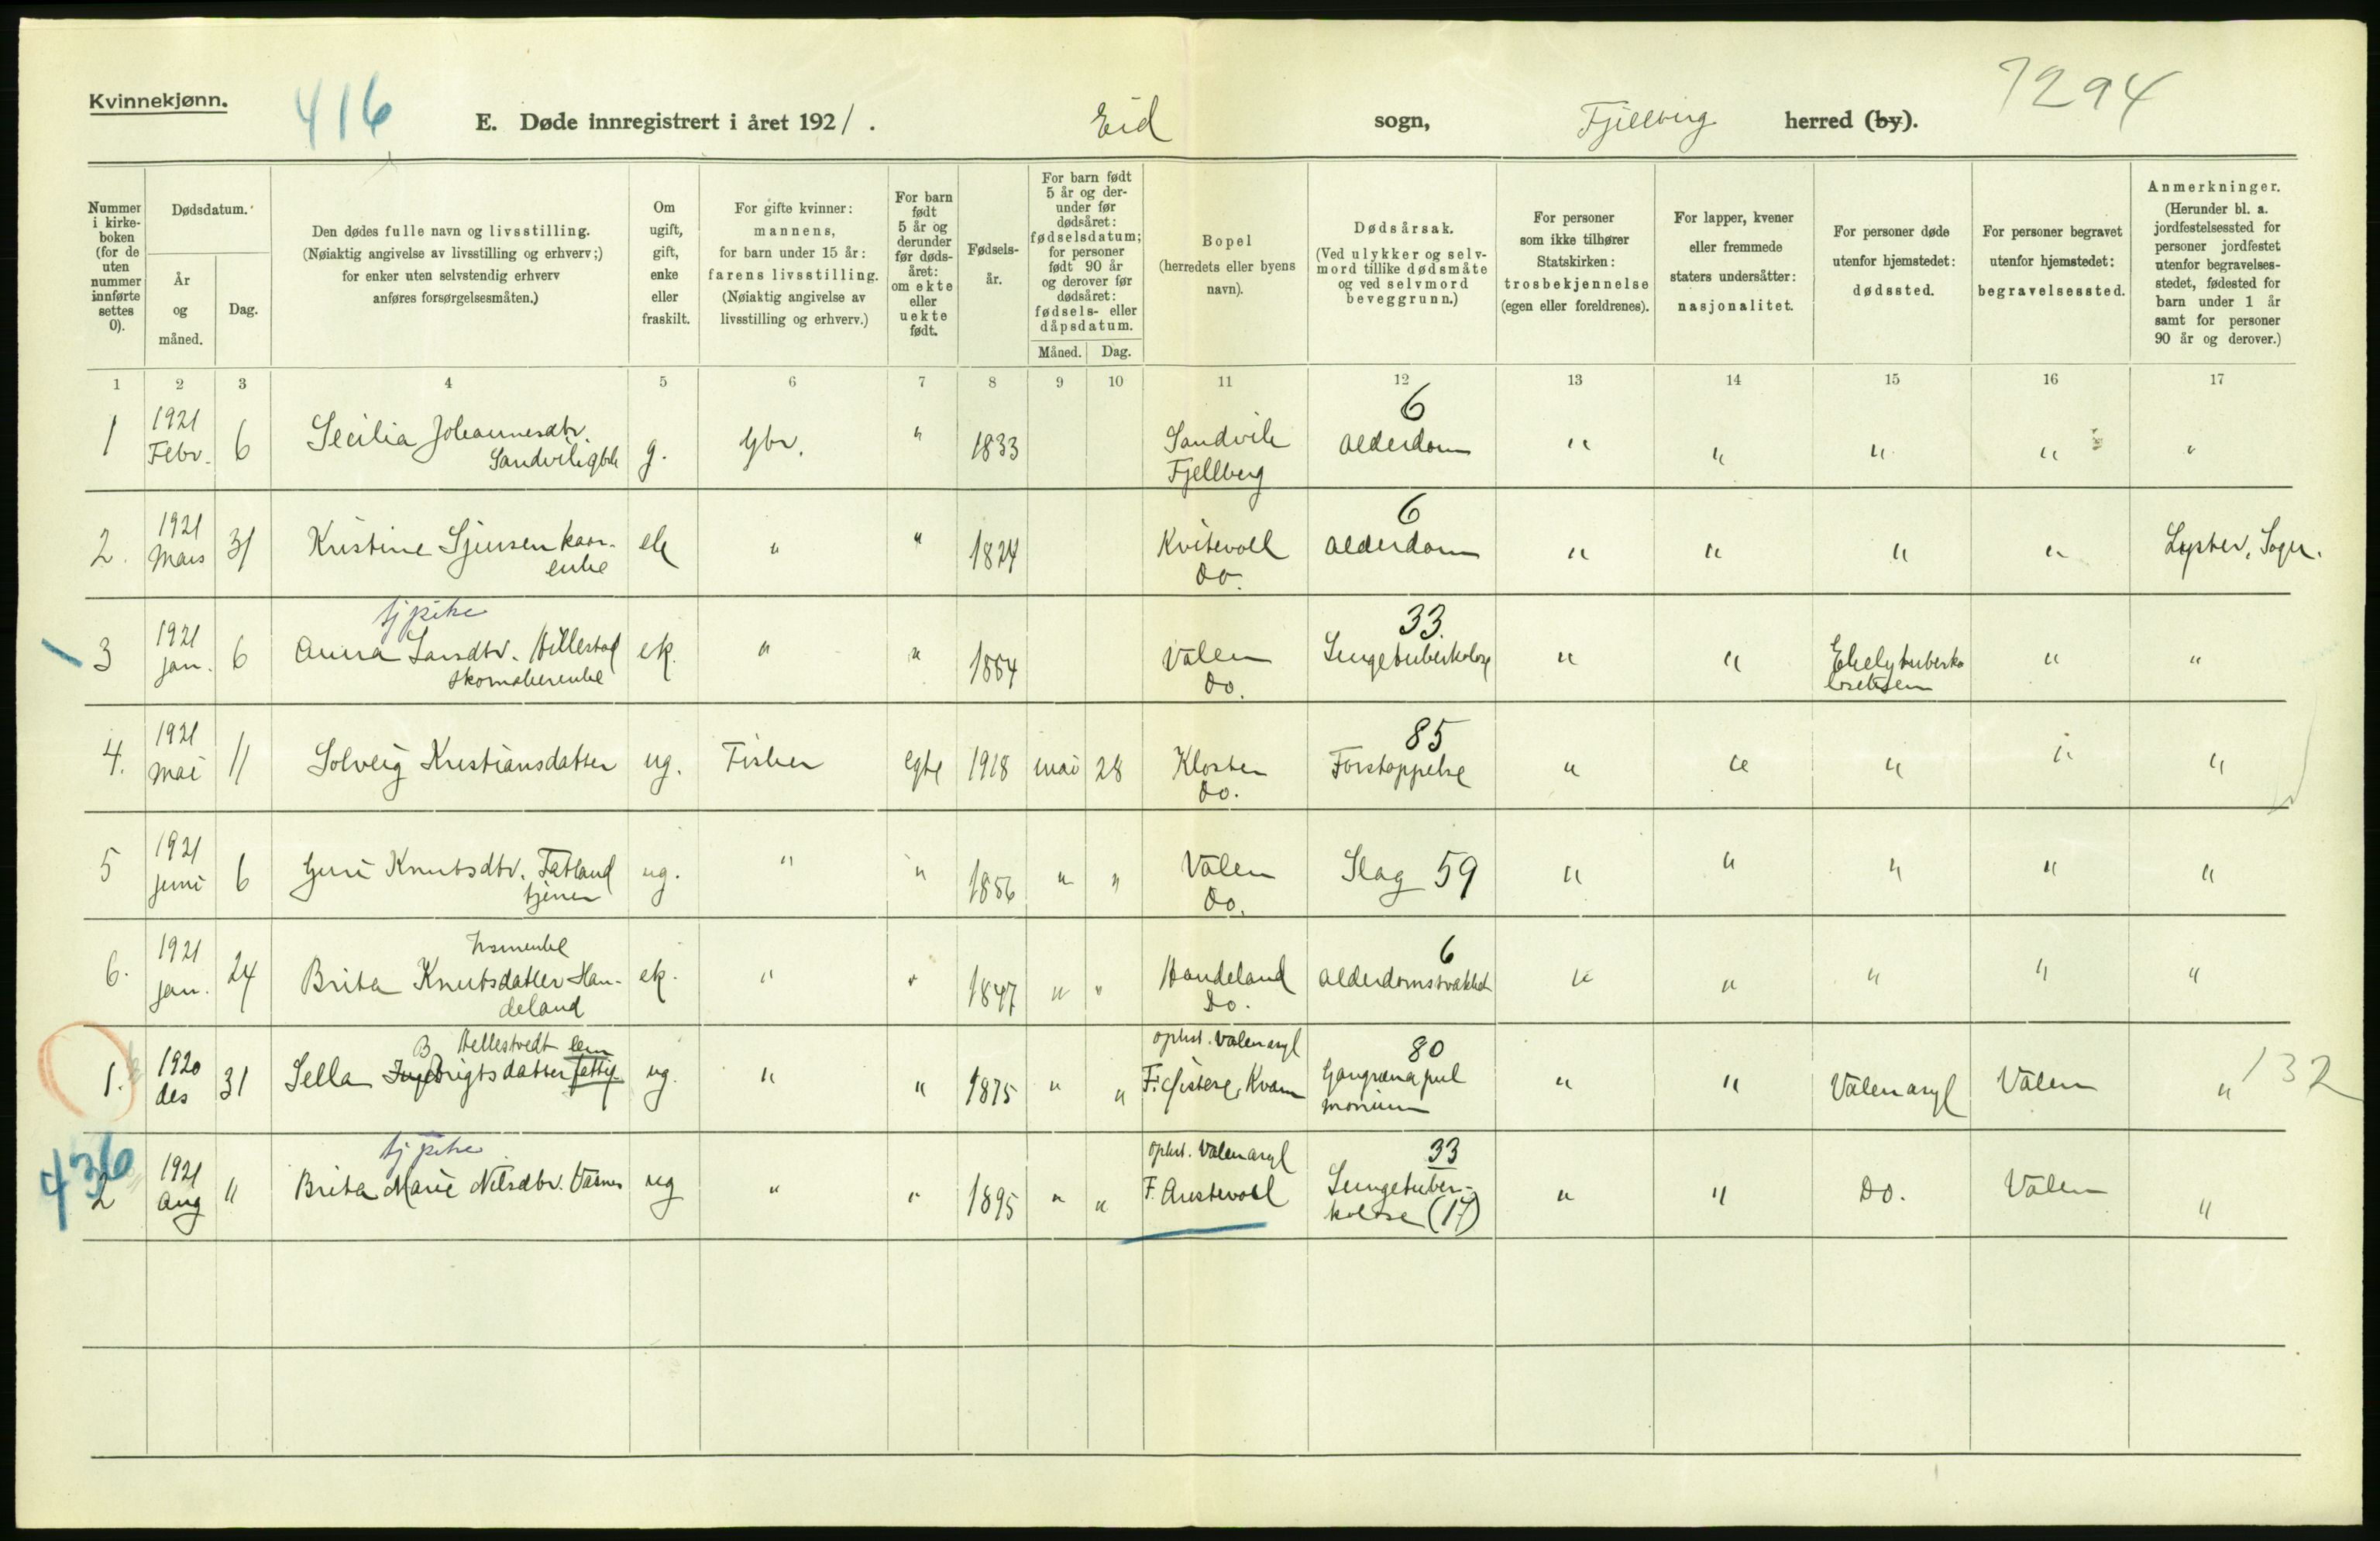 Kvinnekjønn.
416
E. Døde innregistrert i året 1921.
Eid sogn, Fjellberg herred (by).
7294
Nummer i kirke-boken (for de uten nummer innførte settes 0).
Dødsdatum.
År og måned.
Dag.
Den dødes fulle navn og livsstilling.
(Nøiaktig angivelse av livsstilling og erhverv;)
for enker uten selvstendig erhverv
anføres forsørgelsesmåten.)
Om ugift, gift, enke eller fraskilt.
For gifte kvinner: mannens, for barn under 15 år: farens livsstilling. (Nøiaktig angivelse av livsstilling og erhverv.)
For barn født 5 år og derunder før døds-året: om ekte eller uekte født.
Fødsels-år.
For barn født 5 år og der-under før dødsåret: fødselsdatum; for personer født 90 år og derover før dødsåret: fødsels- eller dåpsdatum.
Måned. Dag.
Bopel (herredets eller byens navn).
Dødsårsak. (Ved ulykker og selv-mord tillike dødsmåte og ved selvmord beveggrunn.)
For personer som ikke tilhører Statskirken: trosbekjennelse (egen eller foreldrenes).
For lapper, kvener eller fremmede staters undersåtter: nasjonalitet.
For personer døde utenfor hjemstedet: dødssted.
For personer begravet utenfor hjemstedet: begravelsessted.
Anmerkninger. (Herunder bl. a. jordfestelsessted for personer jordfestet utenfor begravelses-stedet, fødested for barn under 1 år samt for personer 90 år og derover.)
1 2 3 4 5 6 7 8 9 10 11 12 13 14 15 16 17
1 1921 Febr. 6 Secilia Johannesdtr. g. Gbr. " 1833 Sandvik Fjellberg 6 Alderdom " " " " "
2. 1921 Mars 31 Kristine Sjursen kaar-enke ek " " 1824 Kvitevoll Do. 6 Alderdom " " " " Lyster, Sogn.
3 1921 jan. 6 tj pike Anna Larsdtr. Hillestad skomakerenke ek. " " 1864 Valen Do. 33. Lungetuberkolose " " " "
4. 1921 Mai 11 Solveig Kristiansdatter ug. Fisker egte 1918 mai 28 Kloster Do. 85 Forstoppelse " " " " "
5 1921 juni 6 Guri Knutsdtr. Fatland tjener ug. " " 1856 " " Valen Do. Slag 59 " " " " "
6. 1921 jan. 24 Brita Knutsdatter Han-deland ek. " " 1847 " " Handeland Do. 6 Alderdomssvakhet " " " " "
1. 1920 des 31 Sella B Hellestvedt lem fattig ug. " " 1875 " " ophst. Valen asyl Kvam 80 Gangræna pul monum " " Valen asyl Valen " 132
436
2 1921 Aug 11 tj pike Brita Marie Nilsdtr. ug " " 1895 " " ophst. Valen asyl F. Austevoll 33 Lungetuber-kolose (17) " " Do. Valen "